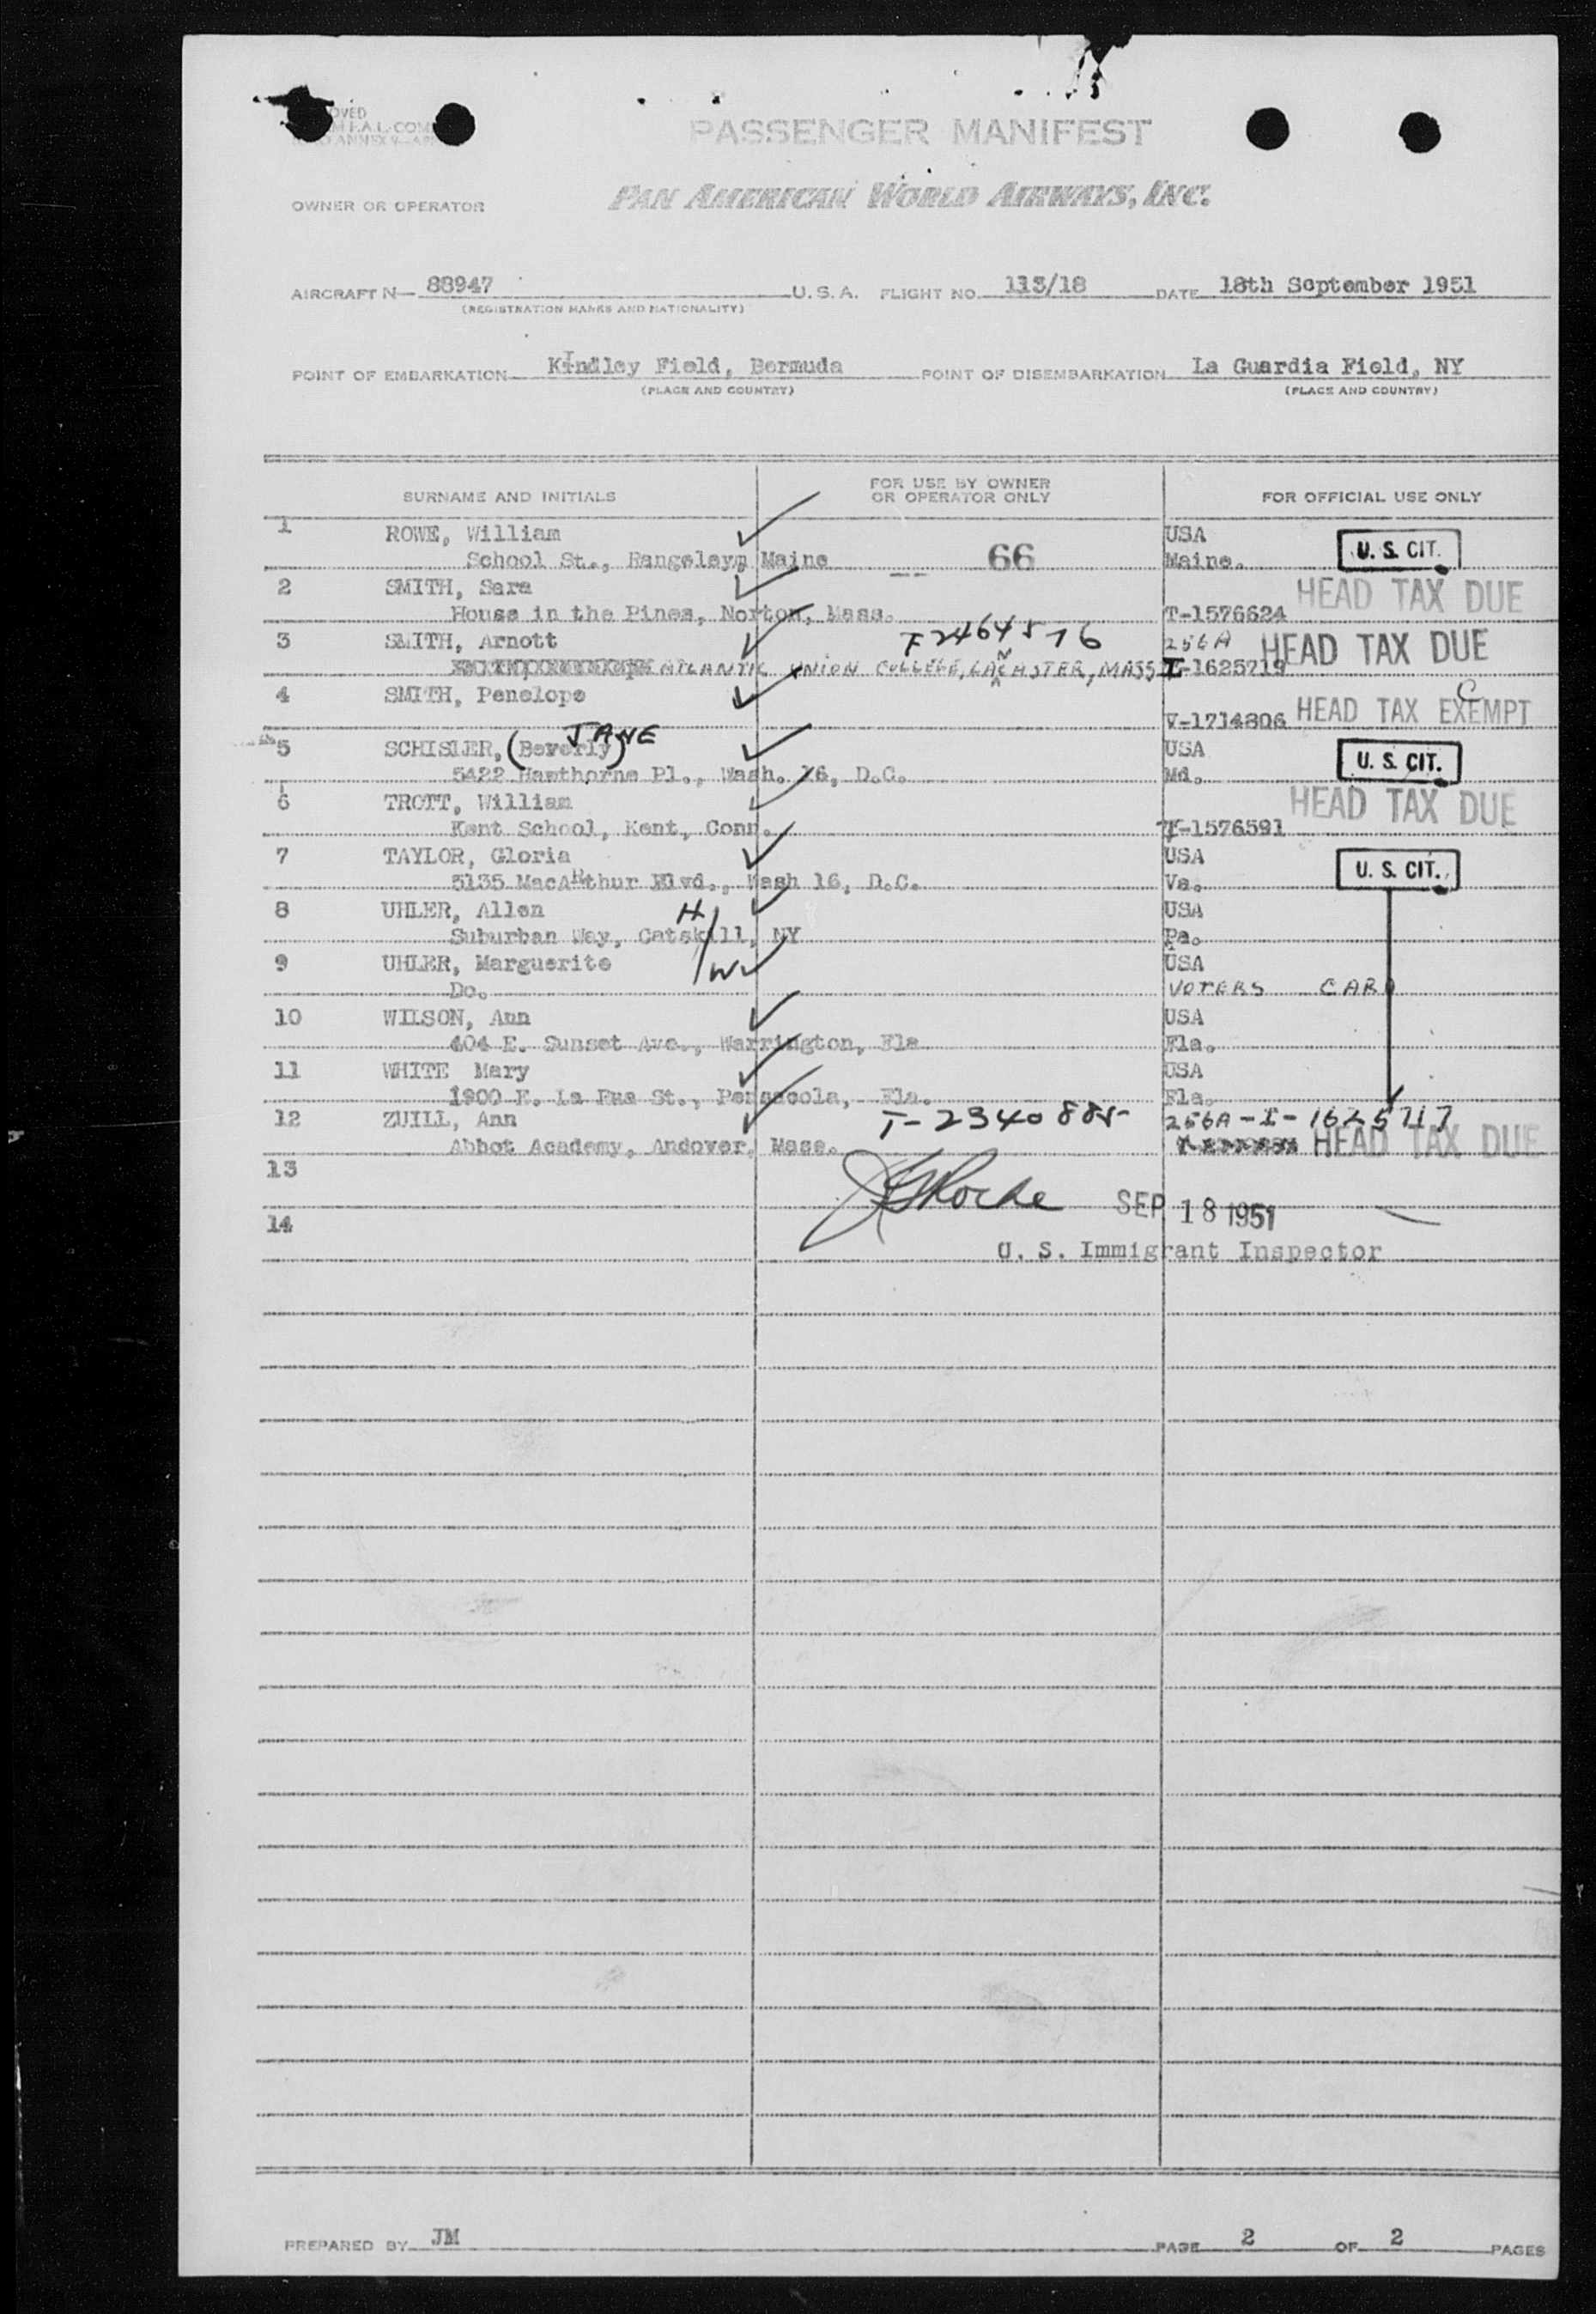 PASSENGER MANIFEST
OWNER OR OPERATOR PAN AMERICAN WORLD AIRWAYS, INC.
AIRCRAFT N— 88947 U. S. A. FLIGHT NO. 113/18 DATE 18th September 1951
(REGISTRATION MARKS AND NATIONALITY)
POINT OF EMBARKATION Kindley Field, Bermuda POINT OF DISEMBARKATION La Guardia Field, NY
(PLACE AND COUNTRY) (PLACE AND COUNTRY)
SURNAME AND INITIALS FOR USE BY OWNER OR OPERATOR ONLY FOR OFFICIAL USE ONLY
1 ROWE, William USA U. S. CIT.
School St., Rangeley, Maine 66 Maine.
2 SMITH, Sara HEAD TAX DUE
House in the Pines, Norton, Mass. T-1576624
3 SMITH, Arnott T2464576 256A HEAD TAX DUE
ATLANTIC UNION COLLEGE, LANCASTER, MASS I-1625719
4 SMITH, Penelope C
V-1714806 HEAD TAX EXEMPT
5 SCHISLER, (Beverly) JANE USA U. S. CIT.
5422 Hawthorne Pl., Wash. 16, D.C. Md.
6 TROTT, William HEAD TAX DUE
Kent School, Kent, Conn. T-1576591
7 TAYLOR, Gloria USA U. S. CIT.
5135 MacArthur Blvd., Wash 16, D.C. Va.
8 UHLER, Allen H USA
Suburban Way, Catskill, NY Pa.
9 UHLER, Marguerite W USA
Do. VOTERS CARD
10 WILSON, Ann USA
404 E. Sunset Ave., Warrington, Fla Fla.
11 WHITE Mary USA
1900 E. La Rua St., Pensacola, Fla. Fla.
12 ZUILL, Ann T-2340885 256A-I-1625717
Abbot Academy, Andover, Mass. HEAD TAX DUE
13
JG Roche SEP 18 1951
14
U. S. Immigrant Inspector
PREPARED BY JM PAGE 2 OF 2 PAGES